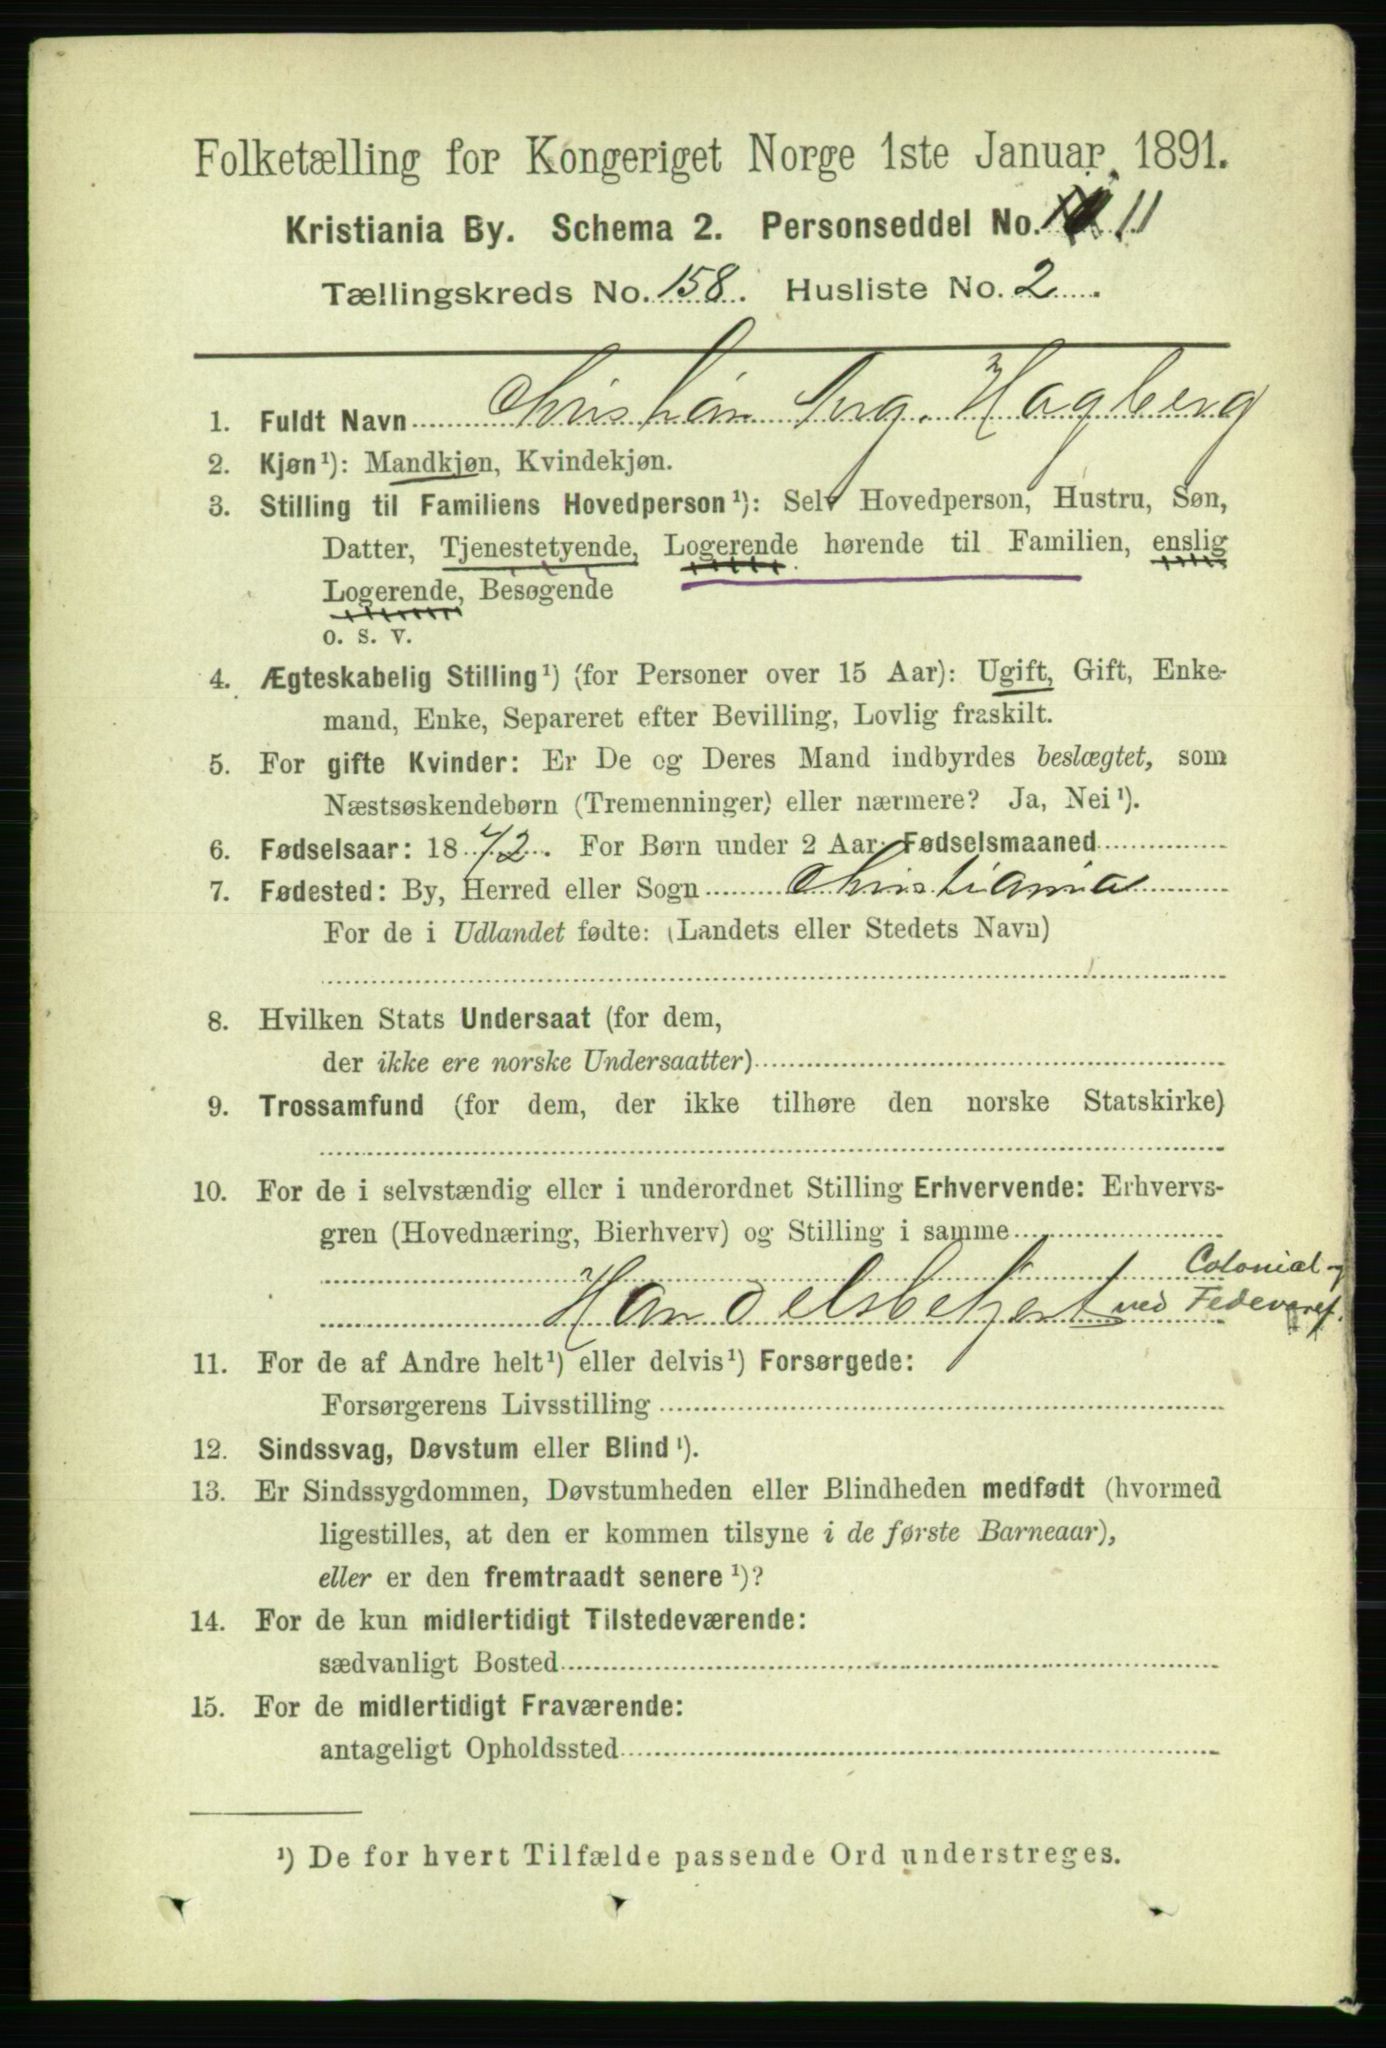 Folketælling for Kongeriget Norge 1ste Januar 1891.
Kristiania By. Schema 2. Personseddel No. 11
Tællingskreds No. 158. Husliste No. 2
1. Fuldt Navn Christian Hagberg
2. Kjøn¹): Mandkjøn, Kvindekjøn.
3. Stilling til Familiens Hovedperson¹): Selv Hovedperson, Hustru, Søn,
Datter, Tjenestetyende, Logerende hørende til Familien, enslig
Logerende, Besøgende
o. s. v.
4. Ægteskabelig Stilling¹) (for Personer over 15 Aar): Ugift, Gift, Enke-
mand, Enke, Separeret efter Bevilling, Lovlig fraskilt.
5. For gifte Kvinder: Er De og Deres Mand indbyrdes beslægtet, som
Næstsøskendebørn (Tremenninger) eller nærmere? Ja, Nei¹).
6. Fødselsaar: 1872. For Børn under 2 Aar: Fødselsmaaned
7. Fødested: By, Herred eller Sogn Christiania
For de i Udlandet fødte: (Landets eller Stedets Navn)
8. Hvilken Stats Undersaat (for dem,
der ikke ere norske Undersaatter)
9. Trossamfund (for dem, der ikke tilhøre den norske Statskirke)
10. For de i selvstændig eller i underordnet Stilling Erhvervende: Erhvervs-
gren (Hovednæring, Bierhverv) og Stilling i samme
Colonial og
Handelsbetjent ved Fedevaref.
11. For de af Andre helt¹) eller delvis¹) Forsørgede:
Forsørgerens Livsstilling
12. Sindssvag, Døvstum eller Blind¹).
13. Er Sindssygdommen, Døvstumheden eller Blindheden medfødt (hvormed
ligestilles, at den er kommen tilsyne i de første Barneaar),
eller er den fremtraadt senere¹)?
14. For de kun midlertidigt Tilstedeværende:
sædvanligt Bosted
15. For de midlertidigt Fraværende:
antageligt Opholdssted
¹) De for hvert Tilfælde passende Ord understreges.